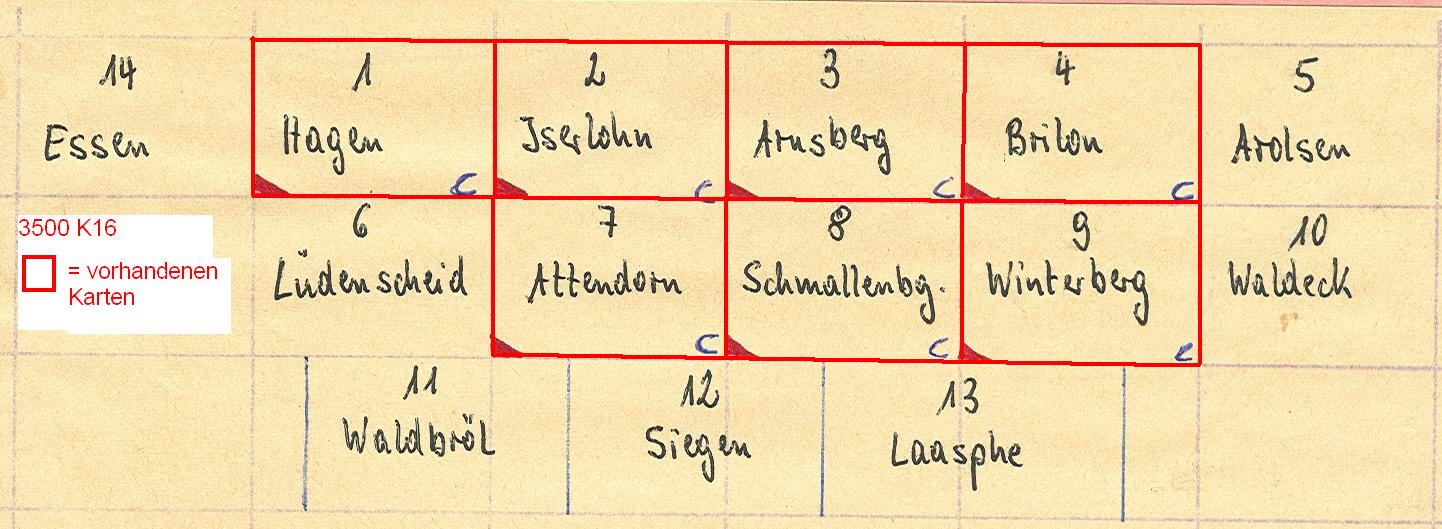 14 1 2 3 4 5
Essen Hagen Iserlohn Arnsberg Brilon Arolsen
C C C C
3500 K16
= vorhandenen
Karten
6 7 8 9 10
Lüdenscheid Attendorn Schmallenbg. Winterberg Waldeck
C C C
11 12 13
Waldbröl Siegen Laasphe